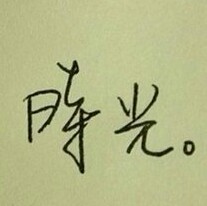 時光。